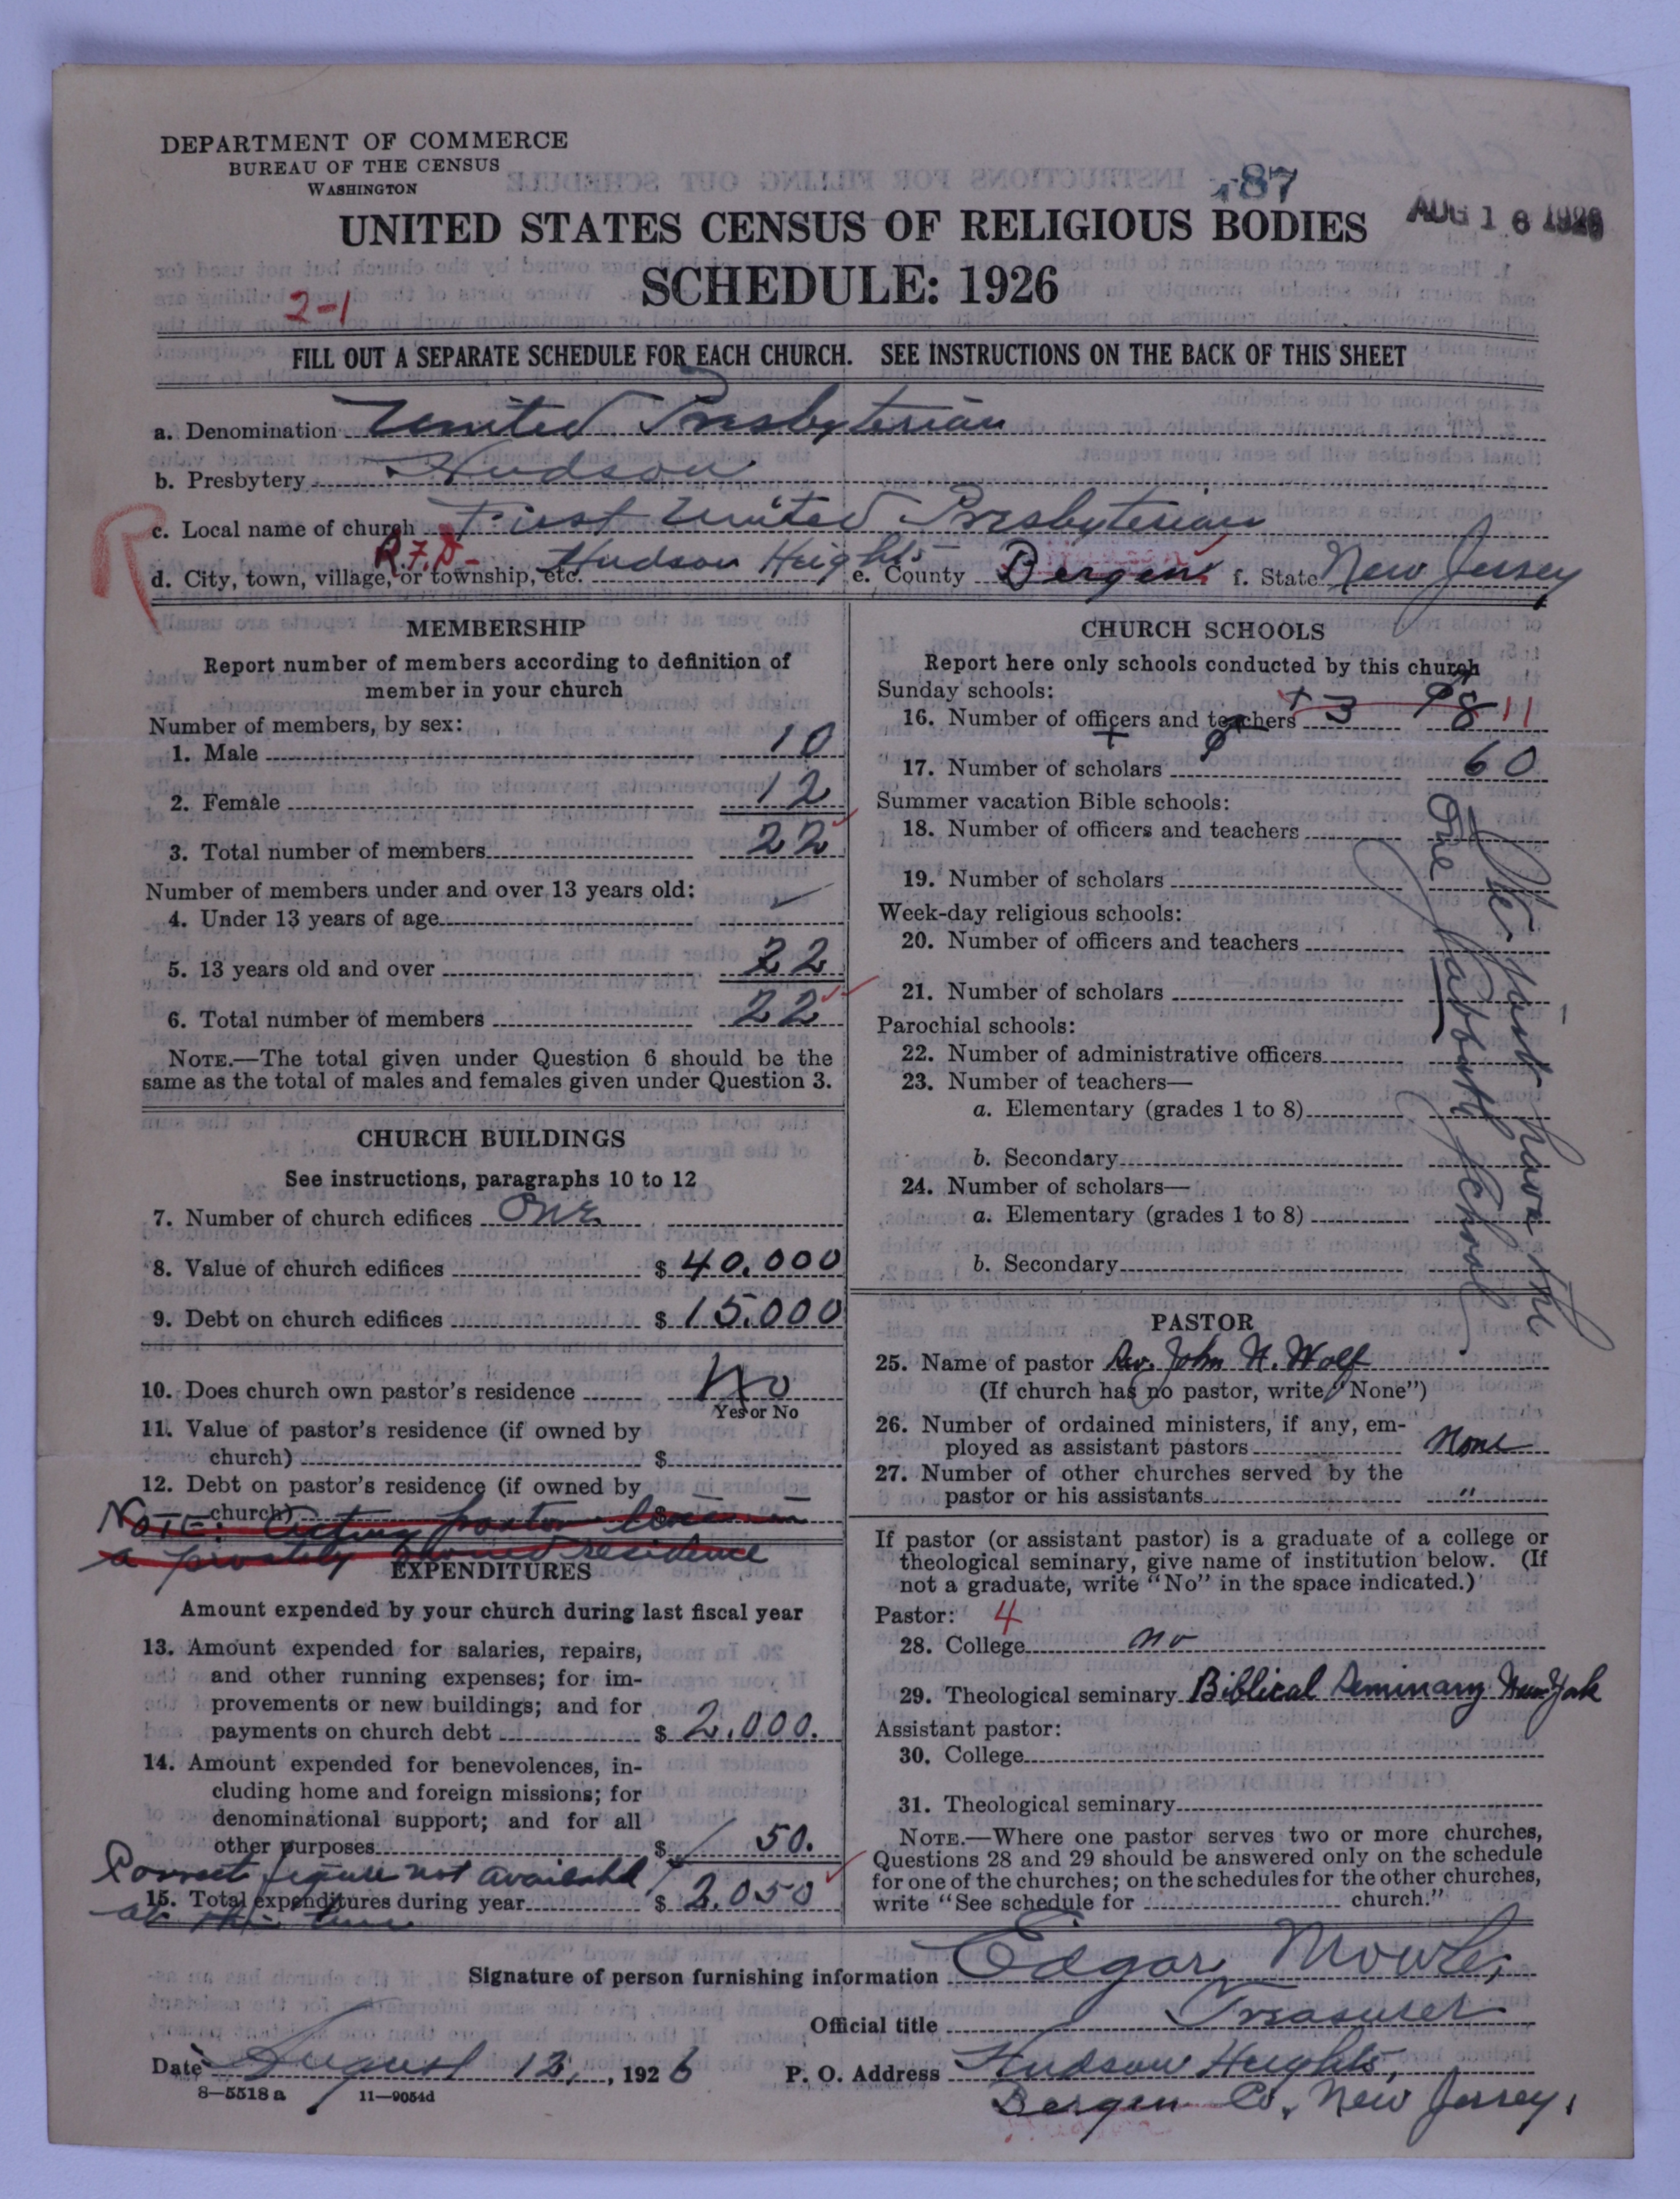 DEPARTMENT OF COMMERCE
BUREAU OF THE CENSUS
WASHINGTON
487
AUG 16 1926
UNITED STATES CENSUS OF RELIGIOUS BODIES
SCHEDULE: 1926
2-1
FILL OUT A SEPARATE SCHEDULE FOR EACH CHURCH. SEE INSTRUCTIONS ON THE BACK OF THIS SHEET
a. Denomination United Presbyterian
b. Presbytery Hudson
R
c. Local name of church First United Presbyterian
R.F.D-
d. City, town, village, or township, etc. Hudson Heights e. County Bergen f. State New Jersey
MEMBERSHIP
Report number of members according to definition of
member in your church
Number of members, by sex:
1. Male 10
2. Female 12
3. Total number of members 22
Number of members under and over 13 years old:
4. Under 13 years of age
5. 13 years old and over 22
6. Total number of members 22
NOTE.—The total given under Question 6 should be the
same as the total of males and females given under Question 3.
CHURCH BUILDINGS
See instructions, paragraphs 10 to 12
7. Number of church edifices One
8. Value of church edifices $ 40.000
9. Debt on church edifices $ 15.000
10. Does church own pastor's residence No
Yes or No
11. Value of pastor's residence (if owned by
church) $
12. Debt on pastor's residence (if owned by
church) $
NOTE: Acting pastor lives in
a privately owned residence
EXPENDITURES
Amount expended by your church during last fiscal year
13. Amount expended for salaries, repairs,
and other running expenses; for im-
provements or new buildings; and for
payments on church debt $ 2.000.
14. Amount expended for benevolences, in-
cluding home and foreign missions; for
denominational support; and for all
other purposes $ 50.
Correct figure not available
15. Total expenditures during year $ 2.050
at this time
CHURCH SCHOOLS
Report here only schools conducted by this church
Sunday schools:
16. Number of officers and teachers + 3 8 11
17. Number of scholars 60
Summer vacation Bible schools:
18. Number of officers and teachers
19. Number of scholars
Week-day religious schools:
20. Number of officers and teachers
21. Number of scholars
Parochial schools:
22. Number of administrative officers
23. Number of teachers—
a. Elementary (grades 1 to 8)
b. Secondary
24. Number of scholars—
a. Elementary (grades 1 to 8)
b. Secondary
We just have the
One Sabbath School
PASTOR
25. Name of pastor Rev. John H. Wolf
(If church has no pastor, write "None")
26. Number of ordained ministers, if any, em-
ployed as assistant pastors None
27. Number of other churches served by the
pastor or his assistants "
If pastor (or assistant pastor) is a graduate of a college or
theological seminary, give name of institution below. (If
not a graduate, write "No" in the space indicated.)
Pastor: 4
28. College no
29. Theological seminary Biblical Seminary New York
Assistant pastor:
30. College
31. Theological seminary
NOTE.—Where one pastor serves two or more churches,
Questions 28 and 29 should be answered only on the schedule
for one of the churches; on the schedules for the other churches,
write "See schedule for church."
Signature of person furnishing information Edgar
Official title Treasurer
Date August 13, 1926 P. O. Address Hudson Heights,
Bergen Co, New Jersey.
8—5518 a 11—9054d